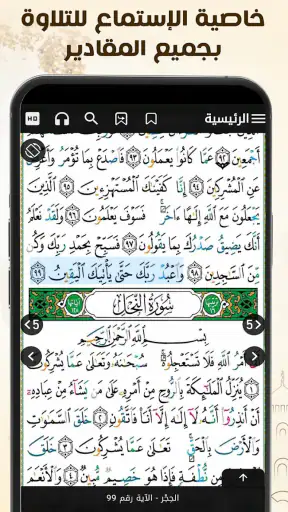 خاصية الإستماع للتلاوة
بجميع المقادير
الرئيسية HD
أَجْمَعِينَ ٩٢ عَمَّا كَانُوا۟ يَعْمَلُونَ ٩٣ فَٱصْدَعْ بِمَا تُؤْمَرُ وَأَعْرِضْ
عَنِ ٱلْمُشْرِكِينَ ٩٤ إِنَّا كَفَيْنَٰكَ ٱلْمُسْتَهْزِءِينَ ٩٥ ٱلَّذِينَ
يَجْعَلُونَ مَعَ ٱللَّهِ إِلَٰهًا ءَاخَرَ ۚ فَسَوْفَ يَعْلَمُونَ ٩٦ وَلَقَدْ نَعْلَمُ
أَنَّكَ يَضِيقُ صَدْرُكَ بِمَا يَقُولُونَ ٩٧ فَسَبِّحْ بِحَمْدِ رَبِّكَ وَكُن
مِّنَ ٱلسَّٰجِدِينَ ٩٨ وَٱعْبُدْ رَبَّكَ حَتَّىٰ يَأْتِيَكَ ٱلْيَقِينُ ٩٩
سُورَةُ النَّحْلِ
5 5
بِسْمِ ٱللَّهِ ٱلرَّحْمَٰنِ ٱلرَّحِيمِ
أَمْرُ ٱللَّهِ فَلَا تَسْتَعْجِلُوهُ ۚ سُبْحَٰنَهُۥ وَتَعَٰلَىٰ عَمَّا يُشْرِكُونَ
يُنَزِّلُ ٱلْمَلَٰٓئِكَةَ بِٱلرُّوحِ مِنْ أَمْرِهِۦ عَلَىٰ مَن يَشَآءُ مِنْ عِبَادِهِۦٓ
أَنْ أَنذِرُوٓا۟ أَنَّهُۥ لَآ إِلَٰهَ إِلَّآ أَنَا۠ فَٱتَّقُونِ ٢ خَلَقَ ٱلسَّمَٰوَٰتِ
وَٱلْأَرْضَ بِٱلْحَقِّ ۚ تَعَٰلَىٰ عَمَّا يُشْرِكُونَ ٣ خَلَقَ
مِن نُّطْفَةٍ فَإِذَا هُوَ خَصِيمٌ مُّبِينٌ ٤ وَٱلْأَنْعَٰمَ
الحِجْر - الآية رقم 99